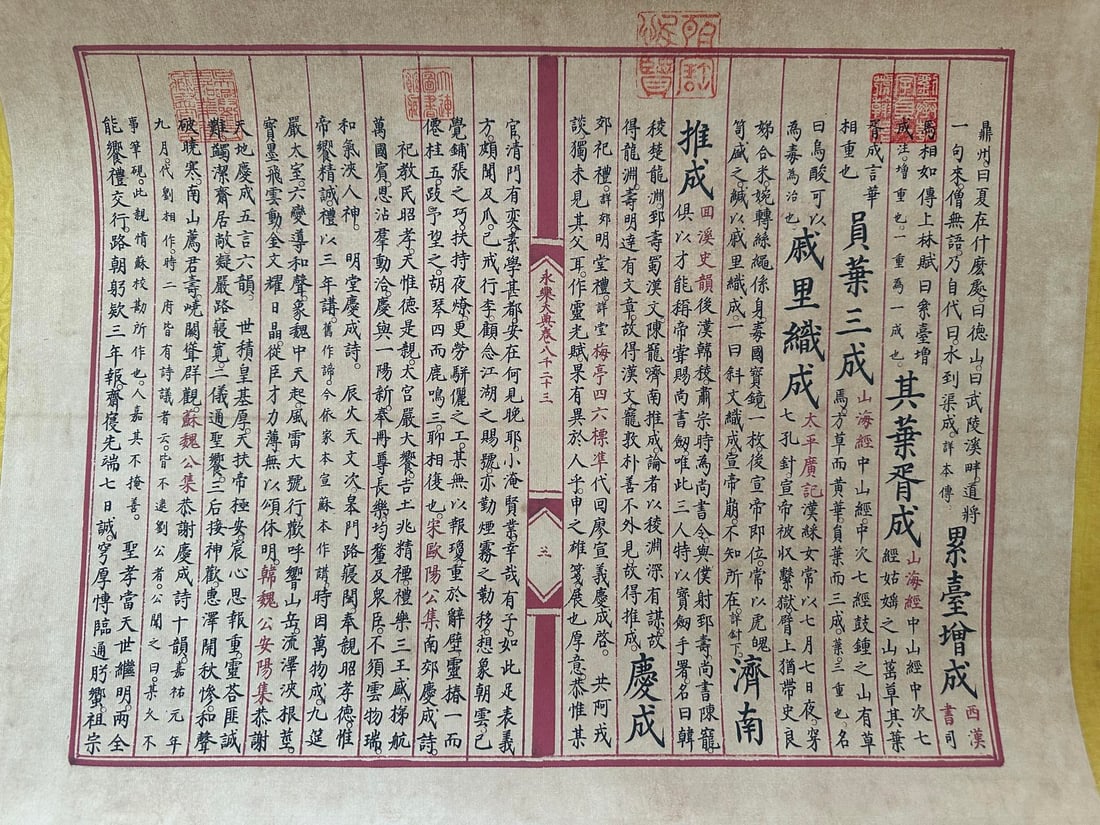 鼎州。曰夏在什麽處。曰德山。曰武陵溪畔。道將
一句來。僧無語。乃自代曰。水到渠成。詳本傳。
累臺增成
西漢
書司
馬相如傳上林賦曰。絫臺增
成。注。增重也。一重為一成也。
其葉胥成
山海經中山經中次七
經姑媱之山。䔄草其葉
胥成。言葉
相重也
員葉三成
山海經中山經中次七經鼓鍾之山。有草
焉。方草而黄華。員葉而三成。葉三重也。名
曰焉酸。可以
為毒。為治也
戚里織成
太平廣記漢綵女常以七月七日夜。穿
七孔針。宣帝被収繫獄。臂上猶帶史良
娣合采。婉轉絲繩。係身毒國寳鏡一枚。後宣帝即位。常以虎魄
笥盛之。緘以戚里織成。一曰斜文織成。宣帝崩。不知所在。詳針下。
濟南
推成
回溪史韻後漢韓稜。肅宗時為尚書令。與僕射郅壽尚書陳寵。
俱以才能稱。帝甞賜尚書劒。唯此三人。特以寳劒手署名曰。韓
稜楚龍淵。郅壽蜀漢文。陳寵濟南推成。論者以稜淵深有謀。故
得龍淵。壽明達有文章。故得漢文。寵敦朴。善不外見。故得推成。
慶成
郊祀禮。詳郊明堂禮。詳堂梅亭四六標準代回廖宣義慶成啓。共阿戎
談。獨未見其父耳。作靈光賦。果有異於人乎。申之雄箋。展也厚意。恭惟某
永樂大典卷八千二十三
三
官清門有奕。素學甚都。安在何見晚耶。小淹賢業。幸哉有子如此。足表義
方。頗聞及瓜。已戒行李。顧念江湖之賜號。亦勤煙霧之勤移。想象朝雲。已
覺鋪張之巧。扶持夜燎。更勞駢儷之工。某無以報瓊。重於辭璧。靈椿一而
僊桂五。跂予望之。胡琴四而鹿鳴三。聊相復也。宋歐陽公集南郊慶成詩
祀教民昭孝。天惟德是親。太宫嚴大饗。吉土兆精禋。禮樂三王盛。梯航
萬國賓。恩沾羣動洽。慶與一陽新。奉冊尊長樂。均釐及衆臣。不須雲物瑞。
和氣浹人神。 明堂慶成詩。 辰火天文次。皋門路寢閎。奉親昭孝德。惟
帝饗精誠。禮以三年講。舊作諦。今依家本宣蘇本作講。時因萬物成。九筵
嚴太室。六變導和聲。象魏中天起。風雷大號行。歡呼響山岳。流澤浹根莖。
寳墨飛雲動。金文耀日晶。從臣才力薄。無以頌休明。韓魏公安陽集恭謝
天地慶成五言六韻。 世積皇基厚。天扶帝極安。宸心思報重。靈荅匪誠
難。蠲潔齋居敞。凝嚴路寢寬。二儀通聖饗。三后接神歡。惠澤開秋慘。和聲
破曉寒。南山薦君壽。嵬闕聳群觀。蘇魏公集恭謝慶成詩十韻。嘉祐元年
九月。代劉相作。時二府皆有詩。議者云。皆不逮劉公者。公聞之曰。某久不
事筆硯。此親情蘇校勘所作也。人嘉其不掩善。 聖孝當天世繼明。兩全
能饗禮交行。路朝躬款三年報。齋寢先端七日誠。穹厚博臨通肸蠁。祖宗